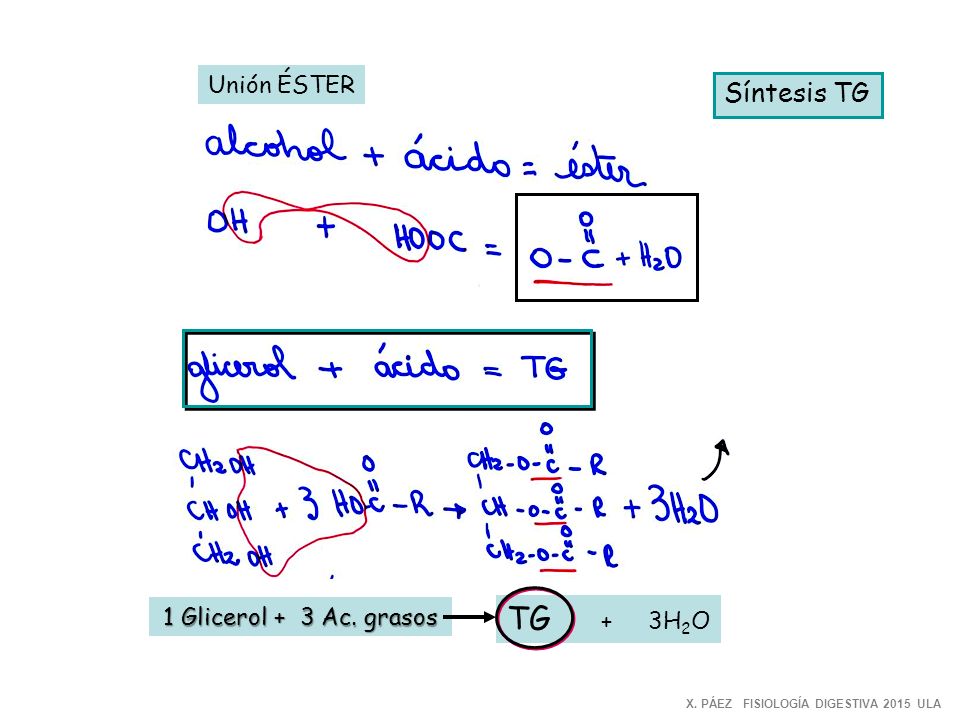 Unión ÉSTER
Síntesis TG
alcohol + ácido = éster
OH + HOOC =
O
O-C + H2O
glicerol + ácido = TG
CH2OH
CHOH + 3 HOC-R →
O
CH2OH
O
CH2-O-C-R
O
CH-O-C-R + 3H2O
O
CH2-O-C-R
1 Glicerol + 3 Ac. grasos
TG + 3H2O
X. PÁEZ FISIOLOGÍA DIGESTIVA 2015 ULA